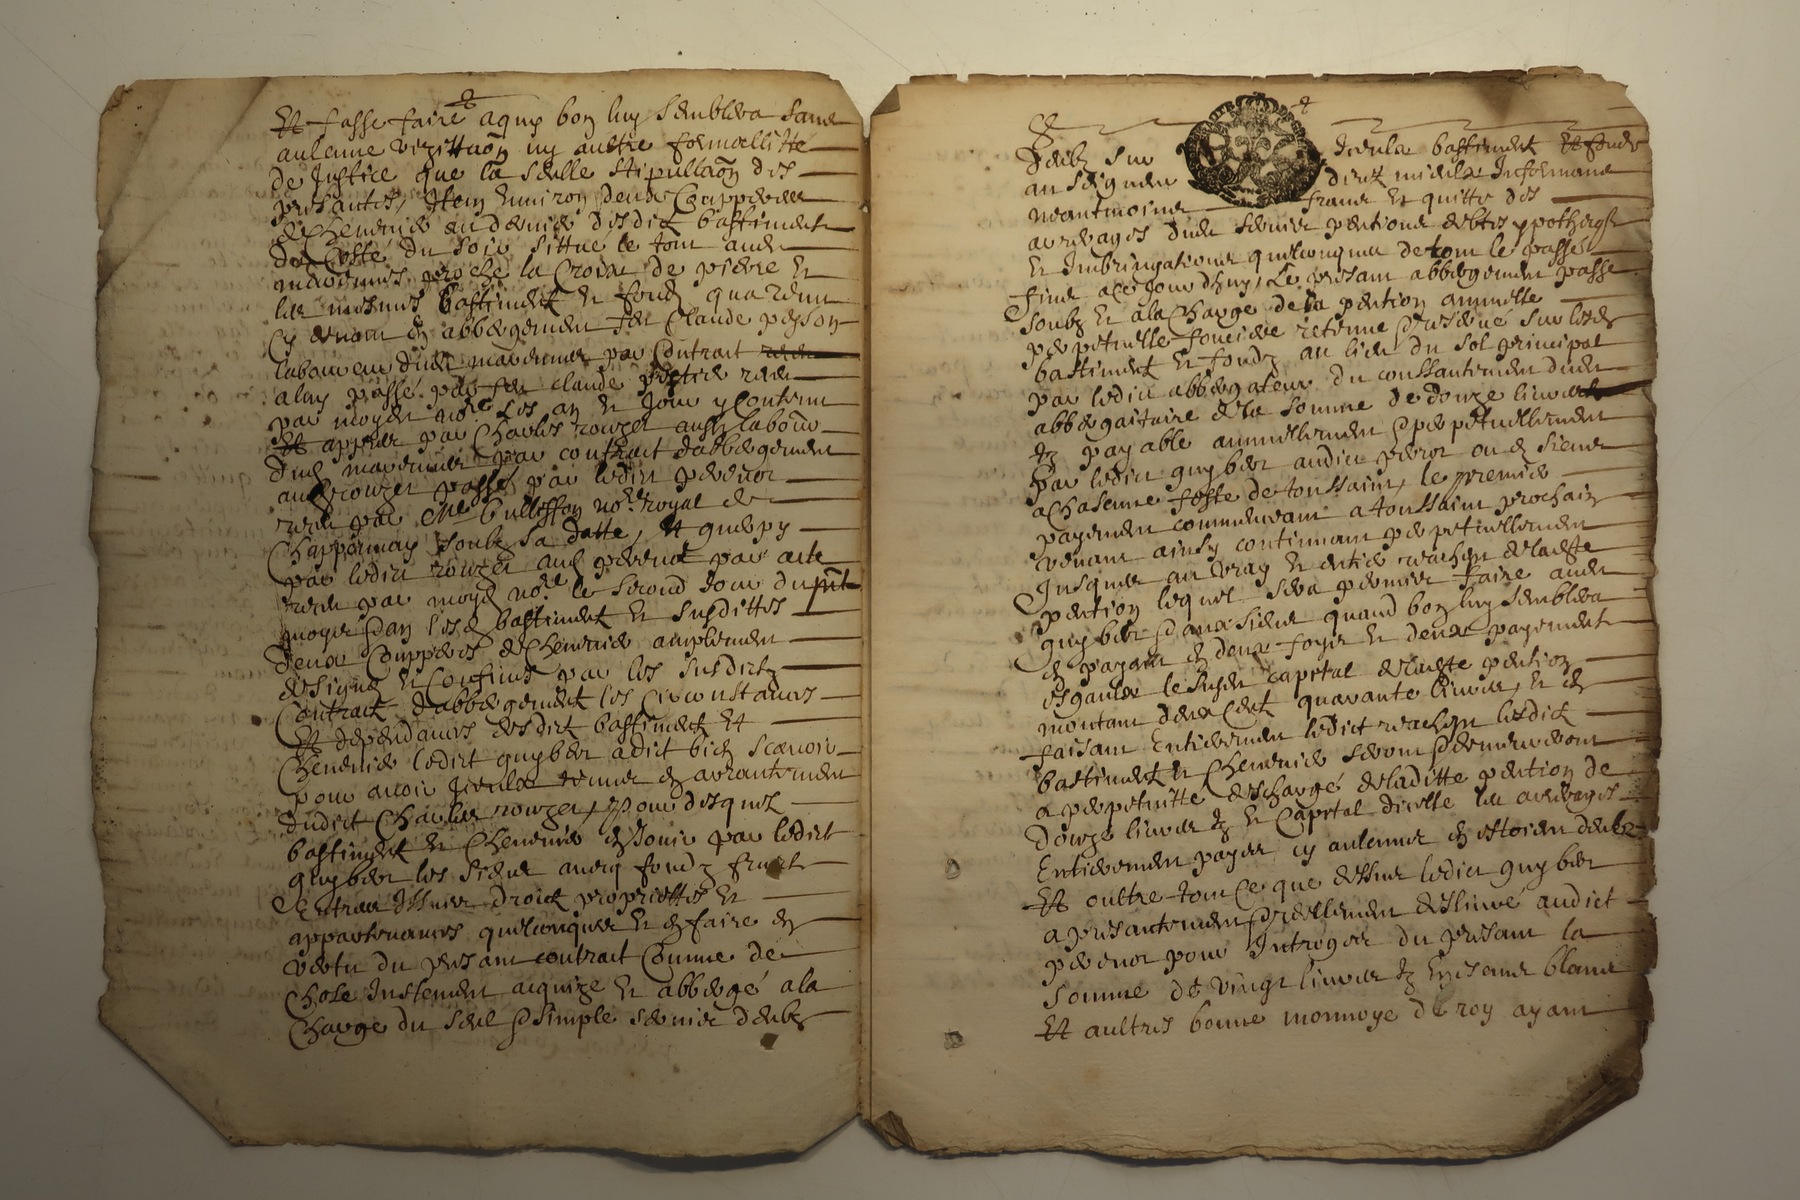 Et fasse faire aquy bon luy semblera sans
aulcune vizittaõn ny aultre formallitté
de Justice que la seulle stipullaõn des
presantes, Item Environ deux Couppées
de Cheneviere au dernier desdict bastiment
du Costé du soir sittué le tout audit
proche la Croix de pierre Et
les mesmes bastiment et fondz
Cy devant en abbergement feu Claude
laboureur dudit par Contrait
a luy passé par feu Claude
par moydit no.re Les an Et Jour y Contenu
Et appres par Charles rouzet aussy labour
dudit par contrait dabbergement
audit rouzet passé par ledict
receu par Me no.re royal de
soubz sa datte, Et
par ledict rouzet audit par acte
receu par moyd no.re le second Jour du pñt
moys Dans lesd bastiment et susdittes
deux Couppées de Cheneviere amplement
designé et Confiné par les susdictz
Contrait dabbergement les Circonstances
Et dependances desdict bastiment Et
Cheneviere ledict guyber a dict bien scavoir
pour avoir Jceulx tenus en
dudict Charles rouzet, Pour desquelz
bastiment et Cheneviere en Jouir par ledict
guyber les siens avecq fondz fruict
Entrées Issues droict propriettés Et
appartenances quelconques Et en faire en
vertu du presant contrait Comme de
chose Justement acquize Et abbergé a la
Charge du seul & simple servis deubz
deubz sur Jceulx bastiment Et fondz
au seigneur direct
neantmoins francz Et quitte des
arrerages dudit servis pentions debtes ypotheques
Et quelconques de tout le passé
Jusques a ce Jourdhuy, Le presant abbergement passé
soubz Et a la Charge de la pention annuelle
perpetuelle fonciere retenue & reservé sur lesd
bastiment Et fondz au lieu du sol principal
par ledict abbergateur du consentement dudit
abbergattaire de la somme de douze livres
tz payable annuellement & perpetuellement
par ledict guyber audict ou es siens
a Chascune feste de toussaint, le premier
payement commenceant a toussaint prochain
venant ainsy continuant perpetuellement
Jusques au vray Et entier rachept de laditte
pention lequel sera permis faire audit
guyber & aux siens quand bon luy semblera
en payant en deux foys Et deux payement
esgaulx le susdit capital de laditte pention
montant deux cent quarante livres, Et en
faisant Entierement ledict rachept lesdict
bastiment Et Cheneviere seront & demeureront
a perpetuitté deschargé de laditte pention de
douze livres tz Et Capital dicelle les arrerages
Entierement payez sy aulcuns en estoient deubz
Et oultre tout Ce que dessus ledict guyber
a presantement & reellement deslivré audict
pour Introges du presant la
somme de vingt livres tz En blanc
Et aultres bonne monnoye de roy ayant